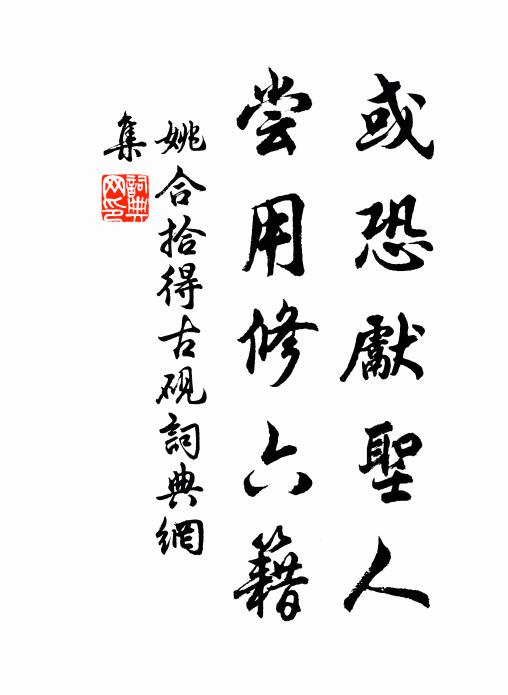 或恐獻聖人
尝用修六籍
姚合拾得古硯詞典網
集
詞典
网印